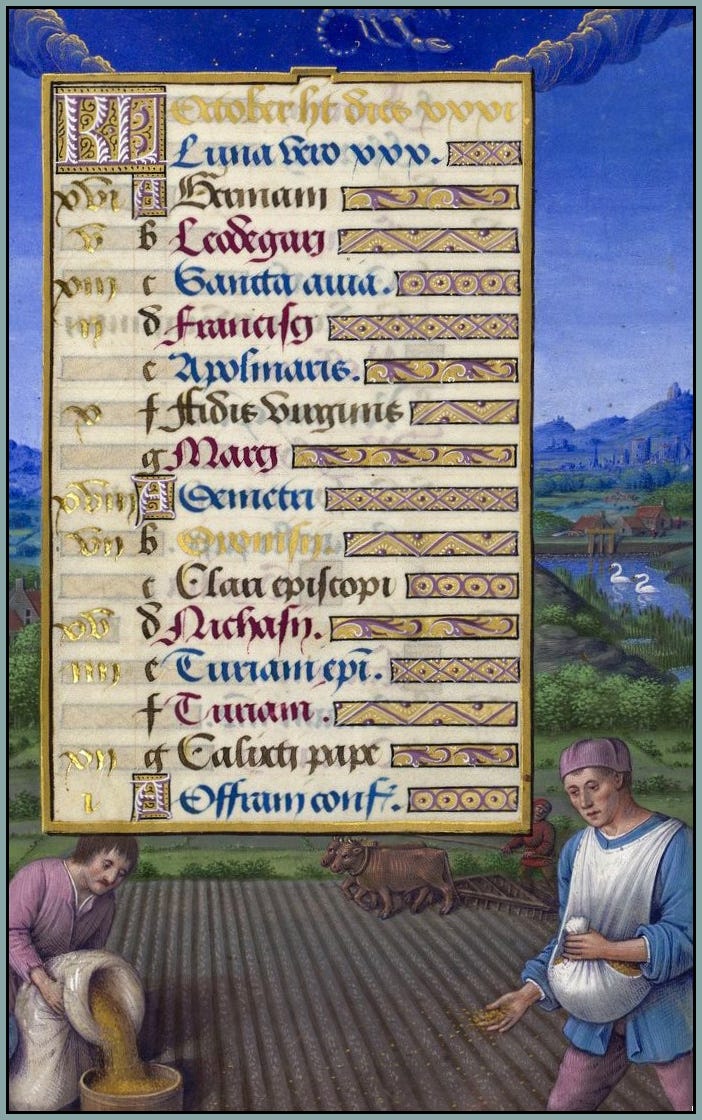 KL October ht dies xxxi
Luna vero xxx.
xvi A Germani
v b Leodegarij
xiii c Sancta auia.
ii d Francisci
e Apolinaris.
x f Fidis virginis
g Marcj
xviii A Demetri
vii b Dionisij.
c Clari episcopi
xv d Nichasij.
iiii e Turiani epi.
f Turiani.
xii g Calixti pape
i A Offrani conf.